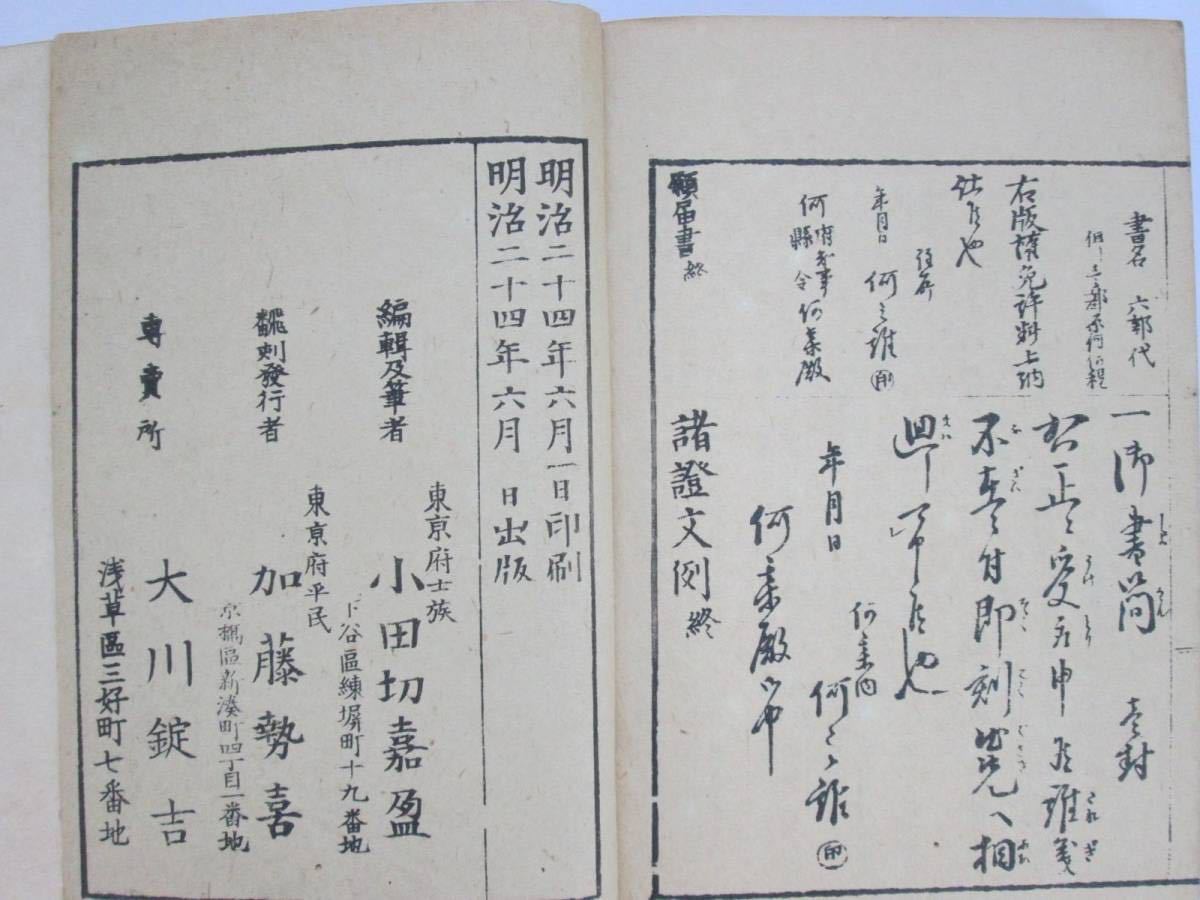 書名 六部代
右版権免許料上納
仕候也
年月日
何之誰 印
何 府知事 縣令 何某殿
願届書 終
一御書簡 壱封
右正ニ受取申候 雖義
不在ニ付即刻 出先へ相
廻し可申候也
年月日
何某内
何之誰 印
何某殿
諸證文例 終
明治二十四年六月一日印刷
明治二十四年六月 日出版
東亰府士族
編輯及筆者 小田切嘉盈
下谷區練塀町十九番地
東亰府平民
飜刻發行者 加藤勢喜
京橋區新湊町四丁目一番地
專賣所 大川錠吉
浅草區三好町七番地